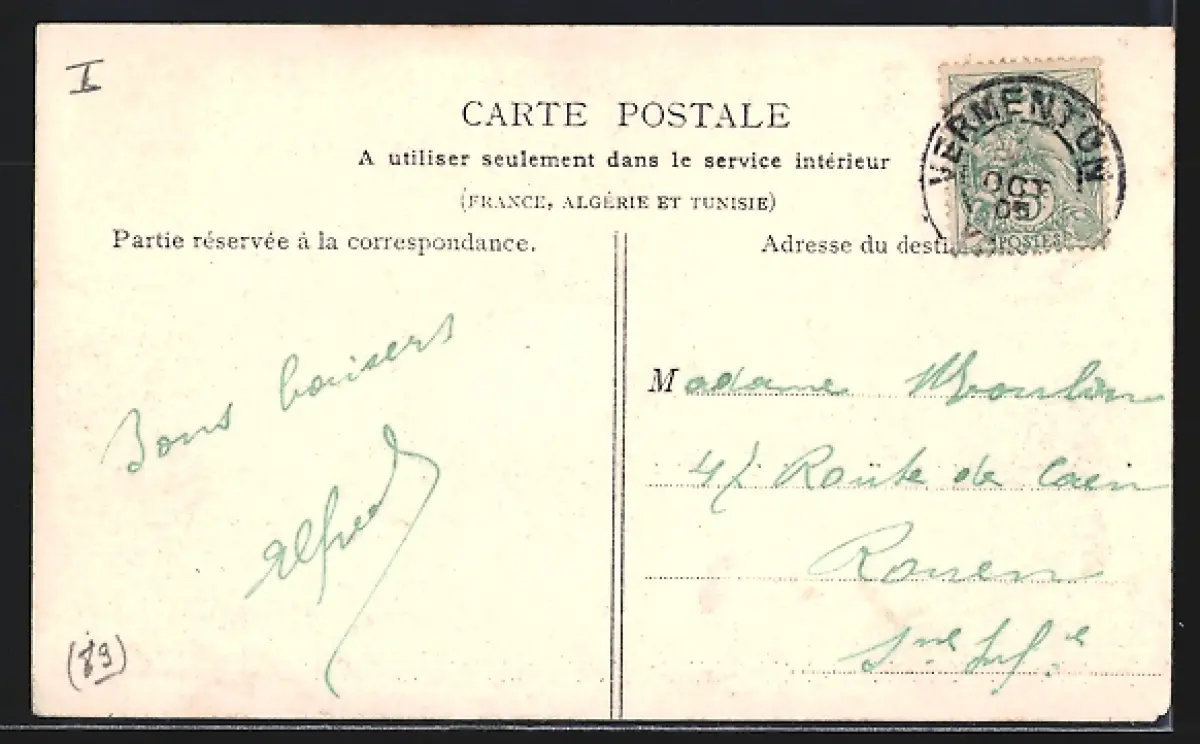 I
CARTE POSTALE
A utiliser seulement dans le service intérieur
(FRANCE, ALGÉRIE ET TUNISIE)
VERMENTON
OCT
05
5
POSTES
Partie réservée à la correspondance.
Bons baisers
Alfred
(89)
Adresse du desti
Madame Moulin
Route de Caen
Rouen
Sne Infre